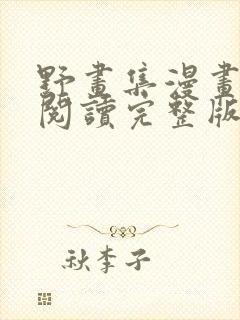 野畫集漫畫
閱讀完整版
秋李子